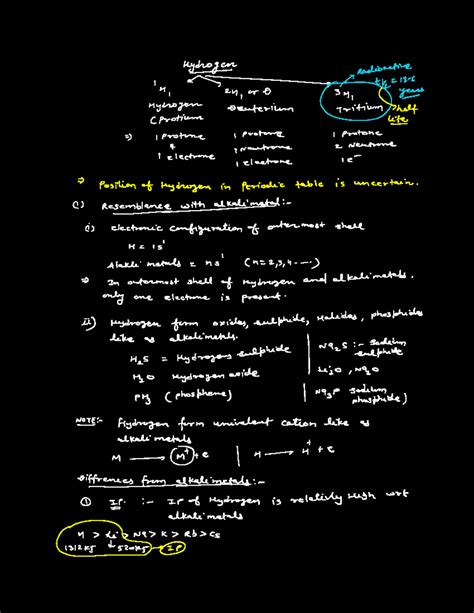 Hydrogen
Radioactive
t½ = 13.6
years
half
life
¹H₁ ²H₁ or D ³H₁
Hydrogen Deuterium Tritium
(Protium
⇒ 1 protone 1 protone 1 protone
& 1 Neutrone 2 Neutrone
1 electrone 1 electrone 1 e⁻
⇒ Position of Hydrogen in Periodic table is uncertain.
Resemblance with alkali metal:-
i) Electronic configuration of outermost shell
H = 1s¹
Alakli metals = ns¹ (n=2,3,4-----)
⇒ In outermost shell of Hydrogen and alkali metals.
only one electrone is present.
ii) Hydrogen form oxides, sulphide, Halides, phosphides
like as alkali metals.
H₂S = Hydrogens sulphide Na₂S :- Sodium sulphide
H₂O Hydrogen oxide Li₂O, Na₂O
PH₃ (phosphene) Na₃P Sodium phosphide)
NOTE:- Hydrogen form univalent cation like as
alkali metals
M → M⁺ + e H → H⁺ + e
Diffrences from alkali metals:-
① I.P. :- IP of Hydrogen is relativly High wrt
alkali metals
H > Li > Na > K > Rb > Cs
1312 KJ 520 KJ → IP